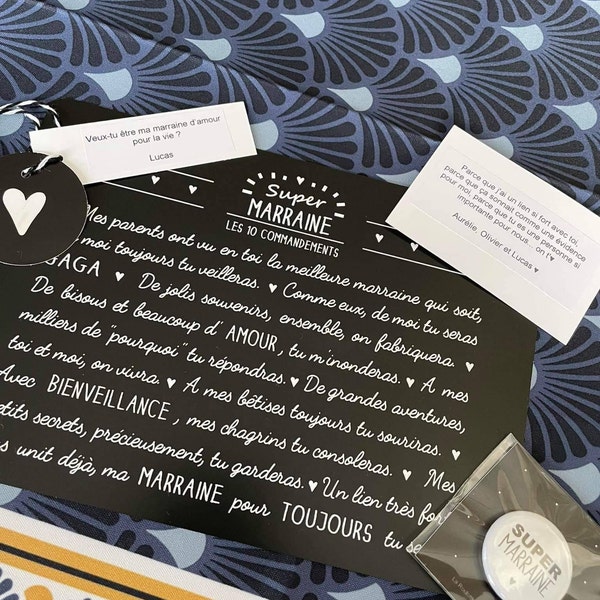 Veux-tu être ma marraine d'amour
pour la vie ?
Lucas
Parce que j'ai un lien si fort avec toi,
parce que ça sonnait comme une évidence
pour moi, parce que tu es une personne si
importante pour nous... on t'♥
Aurélie, Olivier et Lucas ♥
Super
MARRAINE
LES 10 COMMANDEMENTS
Mes parents ont vu en toi la meilleure marraine qui soit,
moi toujours tu veilleras. ♥ Comme eux, de moi tu seras
GAGA ♥ De jolis souvenirs, ensemble, on fabriquera. ♥
De bisous et beaucoup d'AMOUR, tu m'inonderas. ♥ A mes
milliers de "pourquoi" tu répondras. ♥ De grandes aventures,
toi et moi, on vivra. ♥ A mes bêtises toujours tu souriras. ♥
Avec BIENVEILLANCE, mes chagrins tu consoleras. ♥ Mes
petits secrets, précieusement, tu garderas. ♥ Un lien très for
s unit déjà, ma MARRAINE pour TOUJOURS tu se
SUPER
MARRAINE